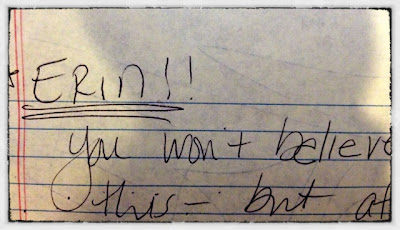 ERIN!!
you won't believe
this- but at